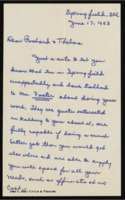 Springfield, Ill.
June 17, 1953
Dear Barbara & Thelma
Just a note to let you
know that I'm in Springfield
unexpectedly and have talked
to Tom Foster about doing your
work. They are quite interested
in talking to you about it, are
fully capable of doing a much
better job than you would get
else where and are able to supply
you with space for all your
needs, such as apartments at no
Cost.